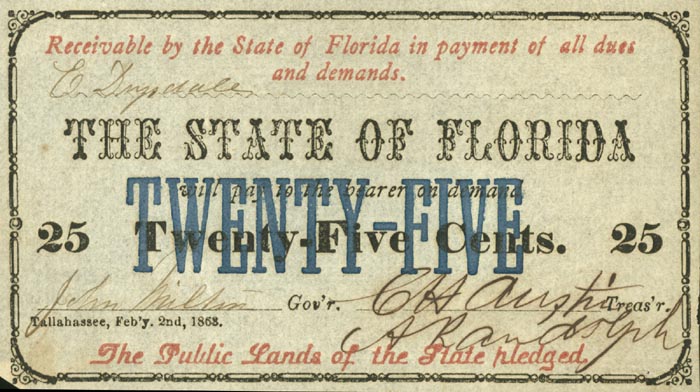 Receivable by the State of Florida in payment of all dues
and demands.
C. Drysdale
THE STATE OF FLORIDA
will pay to the bearer on demand
TWENTY-FIVE
25 Twenty-Five Cents. 25
John Milton Gov'r. C H Austin Treas'r.
Tallahassee, Feb'y. 2nd, 1863. A Randolph
The Public Lands of the State pledged.